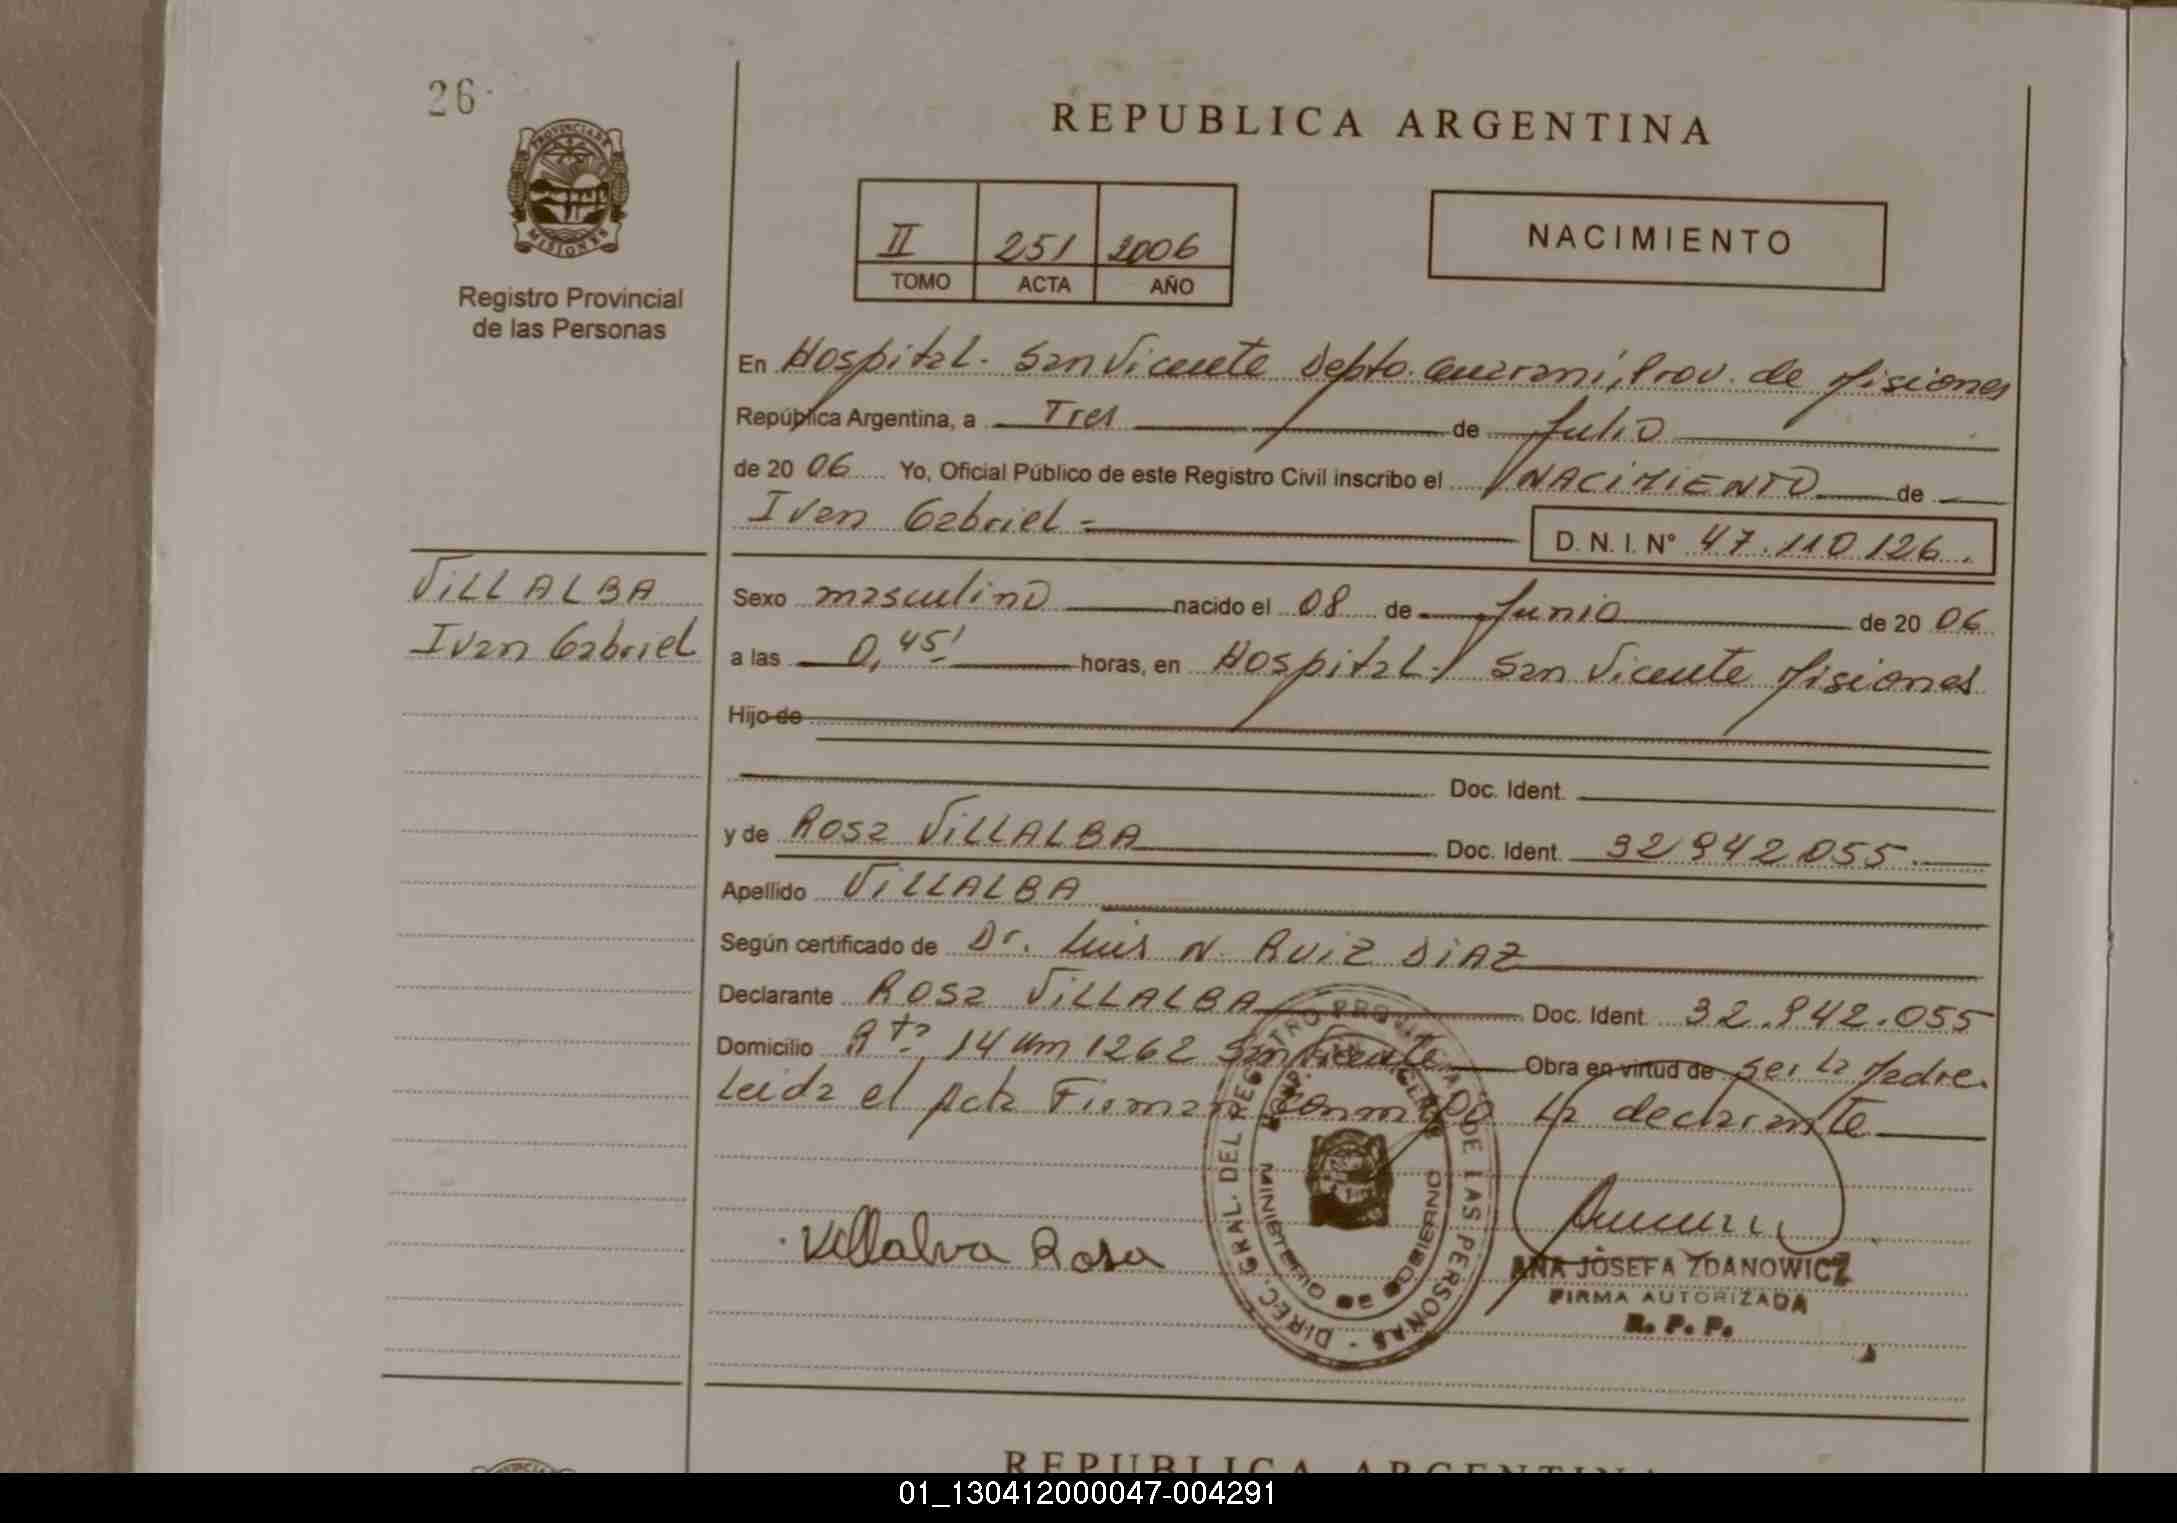 26
PROVINCIA DE
MISIONES
Registro Provincial
de las Personas
REPUBLICA ARGENTINA
II 251 2006
TOMO ACTA AÑO
NACIMIENTO
En Hospital - San Vicente Depto. Guarani, Prov. de Misiones
República Argentina, a Tres de Julio
de 20 06 Yo, Oficial Público de este Registro Civil inscribo el NACIMIENTO de
Ivan Gabriel =
D. N. I. N° 47.110.126.
VILLALBA
Ivan Gabriel
Sexo masculino nacido el 08 de Junio de 20 06
a las 0,45' horas, en Hospital / San Vicente Misiones
Hijo de
Doc. Ident.
y de Rosa VILLALBA Doc. Ident. 32.942.055.
Apellido VILLALBA
Según certificado de Dr. Luis N. RUIZ DIAZ
Declarante Rosa VILLALBA Doc. Ident. 32.942.055
Domicilio Rta. 14 Km 1262 San Vicente Obra en virtud de ser la Madre.
Leida el Acta Firman conmigo la declarante
Villalva Rosa
DIREC. GRAL. DEL REGISTRO PROVINCIAL DE LAS PERSONAS -
MINISTERIO DE GOBIERNO
ANA JOSEFA ZDANOWICZ
FIRMA AUTORIZADA
R. P. P.
REPUBLICA ARGENTINA
01_130412000047-004291